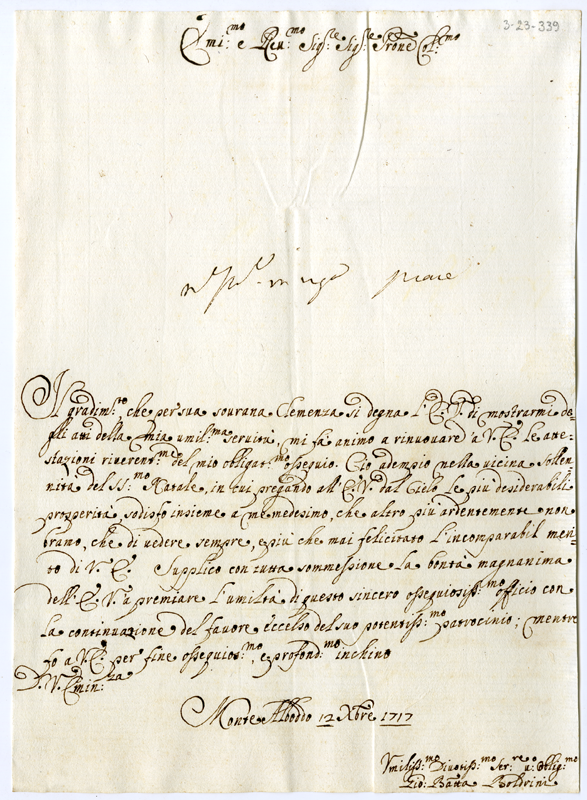 3-23-339
Em:mo e Reu:mo Sig:re Sig:re Prone Col:mo
Il gradim:to, che per sua sourana Clemenza si degna l'E. V. di mostrarmi de
gli atti della mia umil:ma seruitù, mi fà animo a rinuouare a V. E. le atte-
stazioni riverent:me del mio obligat:mo ossequio. Ciò adempio nella uicina sollen-
nità del SS:mo Natale, in cui pregando all'E. V. dal Cielo le più desiderabili
prosperità, sodisfo insieme a me medesimo, che altro più ardentemente non
bramo, che di uedere sempre, e più che mai felicitato l'incomparabil meri-
to di V. E. Supplico con tutta sommessione la bontà magnanima
dell'E. V. a premiare l'umiltà di questo sincero ossequiosiss:mo officio con
la continuazione del fauore eccelso del suo potentiss:mo patrocinio; mentre
fo a V. E. per fine ossequios:mo, e profond:mo inchino
D. V. Emin:za
Monte Alboddo 12 Xbre 1717
Vmiliss:mo Diuotiss:mo Ser:re u: Oblig:mo
Gio: Batta Boldrini